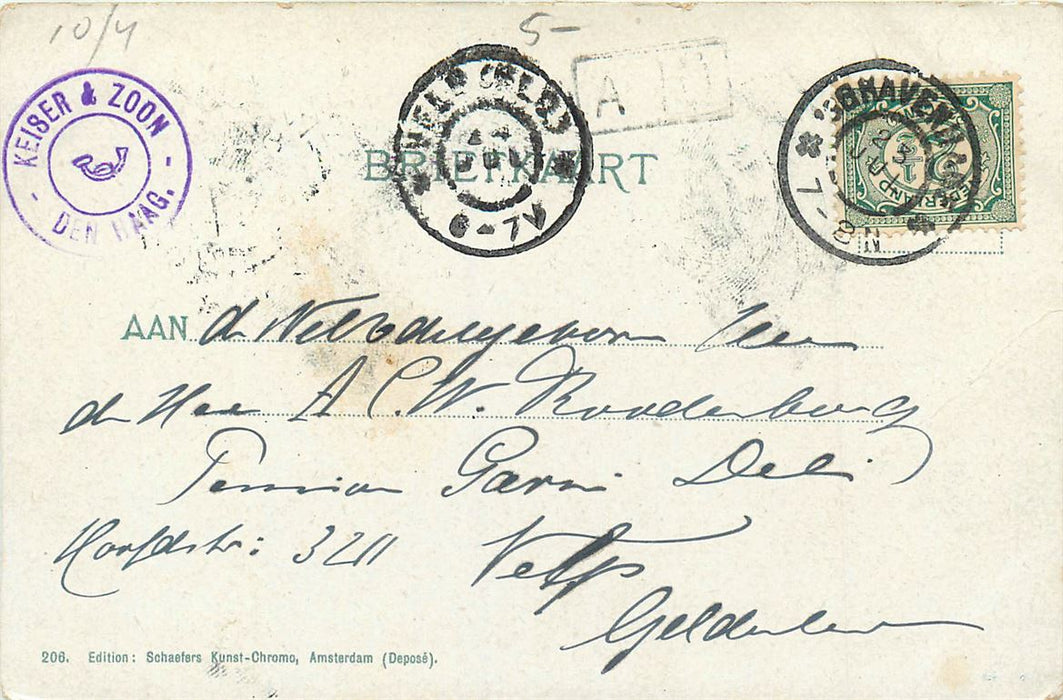 10/4
5-
KEISER & ZOON
DEN HAAG.
VELP (GLD)
6-7V
'S GRAVENHAGE
7-8N
BRIEFKAART
AAN de WelEdelgeboren Heer
de Heer A. C. W. Rooderburg
Pension Garni Deli
Hoofdstr: 32
Velp
Gelderland
206. Edition: Schaefers Kunst-Chromo, Amsterdam (Deposé).